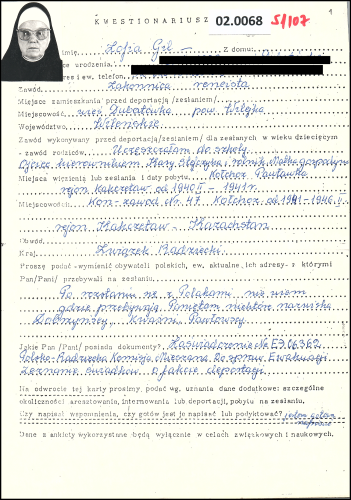 KWESTIONARIUSZ 02.0068 S/107
1
imię, Zofia Gil — Z domu
urodzenia
res i ew. telefon
Zawód Zakonnica rencista
Miejsce zamieszkania przed deportacją /zesłaniem/
Miejscowość wieś Dubatówka pow. Wilejka
Województwo Wileńskie
Zawód wykonywany przed deportacją/zesłaniem/ dla zesłanych w wieku dziecięcym
- zawód rodziców Uczęszczałam do szkoły
Ojciec Matka gospodyni
Miejsca więzienia lub zesłania i daty pobytu Kołchoz Pawłowka
rejon od 1940 - 1941 r.
Miejscowość Kon-zawod Nr 47 Kołchoz od 1941-1946
rejon Kazachstan
Obwód
Kraj Związek Radziecki
Proszę podać - wymienić obywateli polskich, ew. aktualne ich adresy - z którymi
Pan/Pani/ przebywali na zesłaniu
Po rozstaniu się z Polakami nie wiem
gdzie przebywają. Pamiętam niektóre nazwiska
Jakie Pan /Pani/ posiada dokumenty? Zaświadczenie Nr E706362
Polsko-Radziecka Komisja Mieszana Do spraw Ewakuacji
Zeznanie świadków o fakcie deportacji
Na odwrocie tej karty prosimy, podać wg. uznania dane dodatkowe: szczególne
okoliczności aresztowania, internowania lub deportacji, pobytu na zesłaniu.
Czy napisał wspomnienia, czy gotów jest je napisać lub podyktować? jestem gotowa
napisać
Dane z ankiety wykorzystane będą wyłącznie w celach związkowych i naukowych.